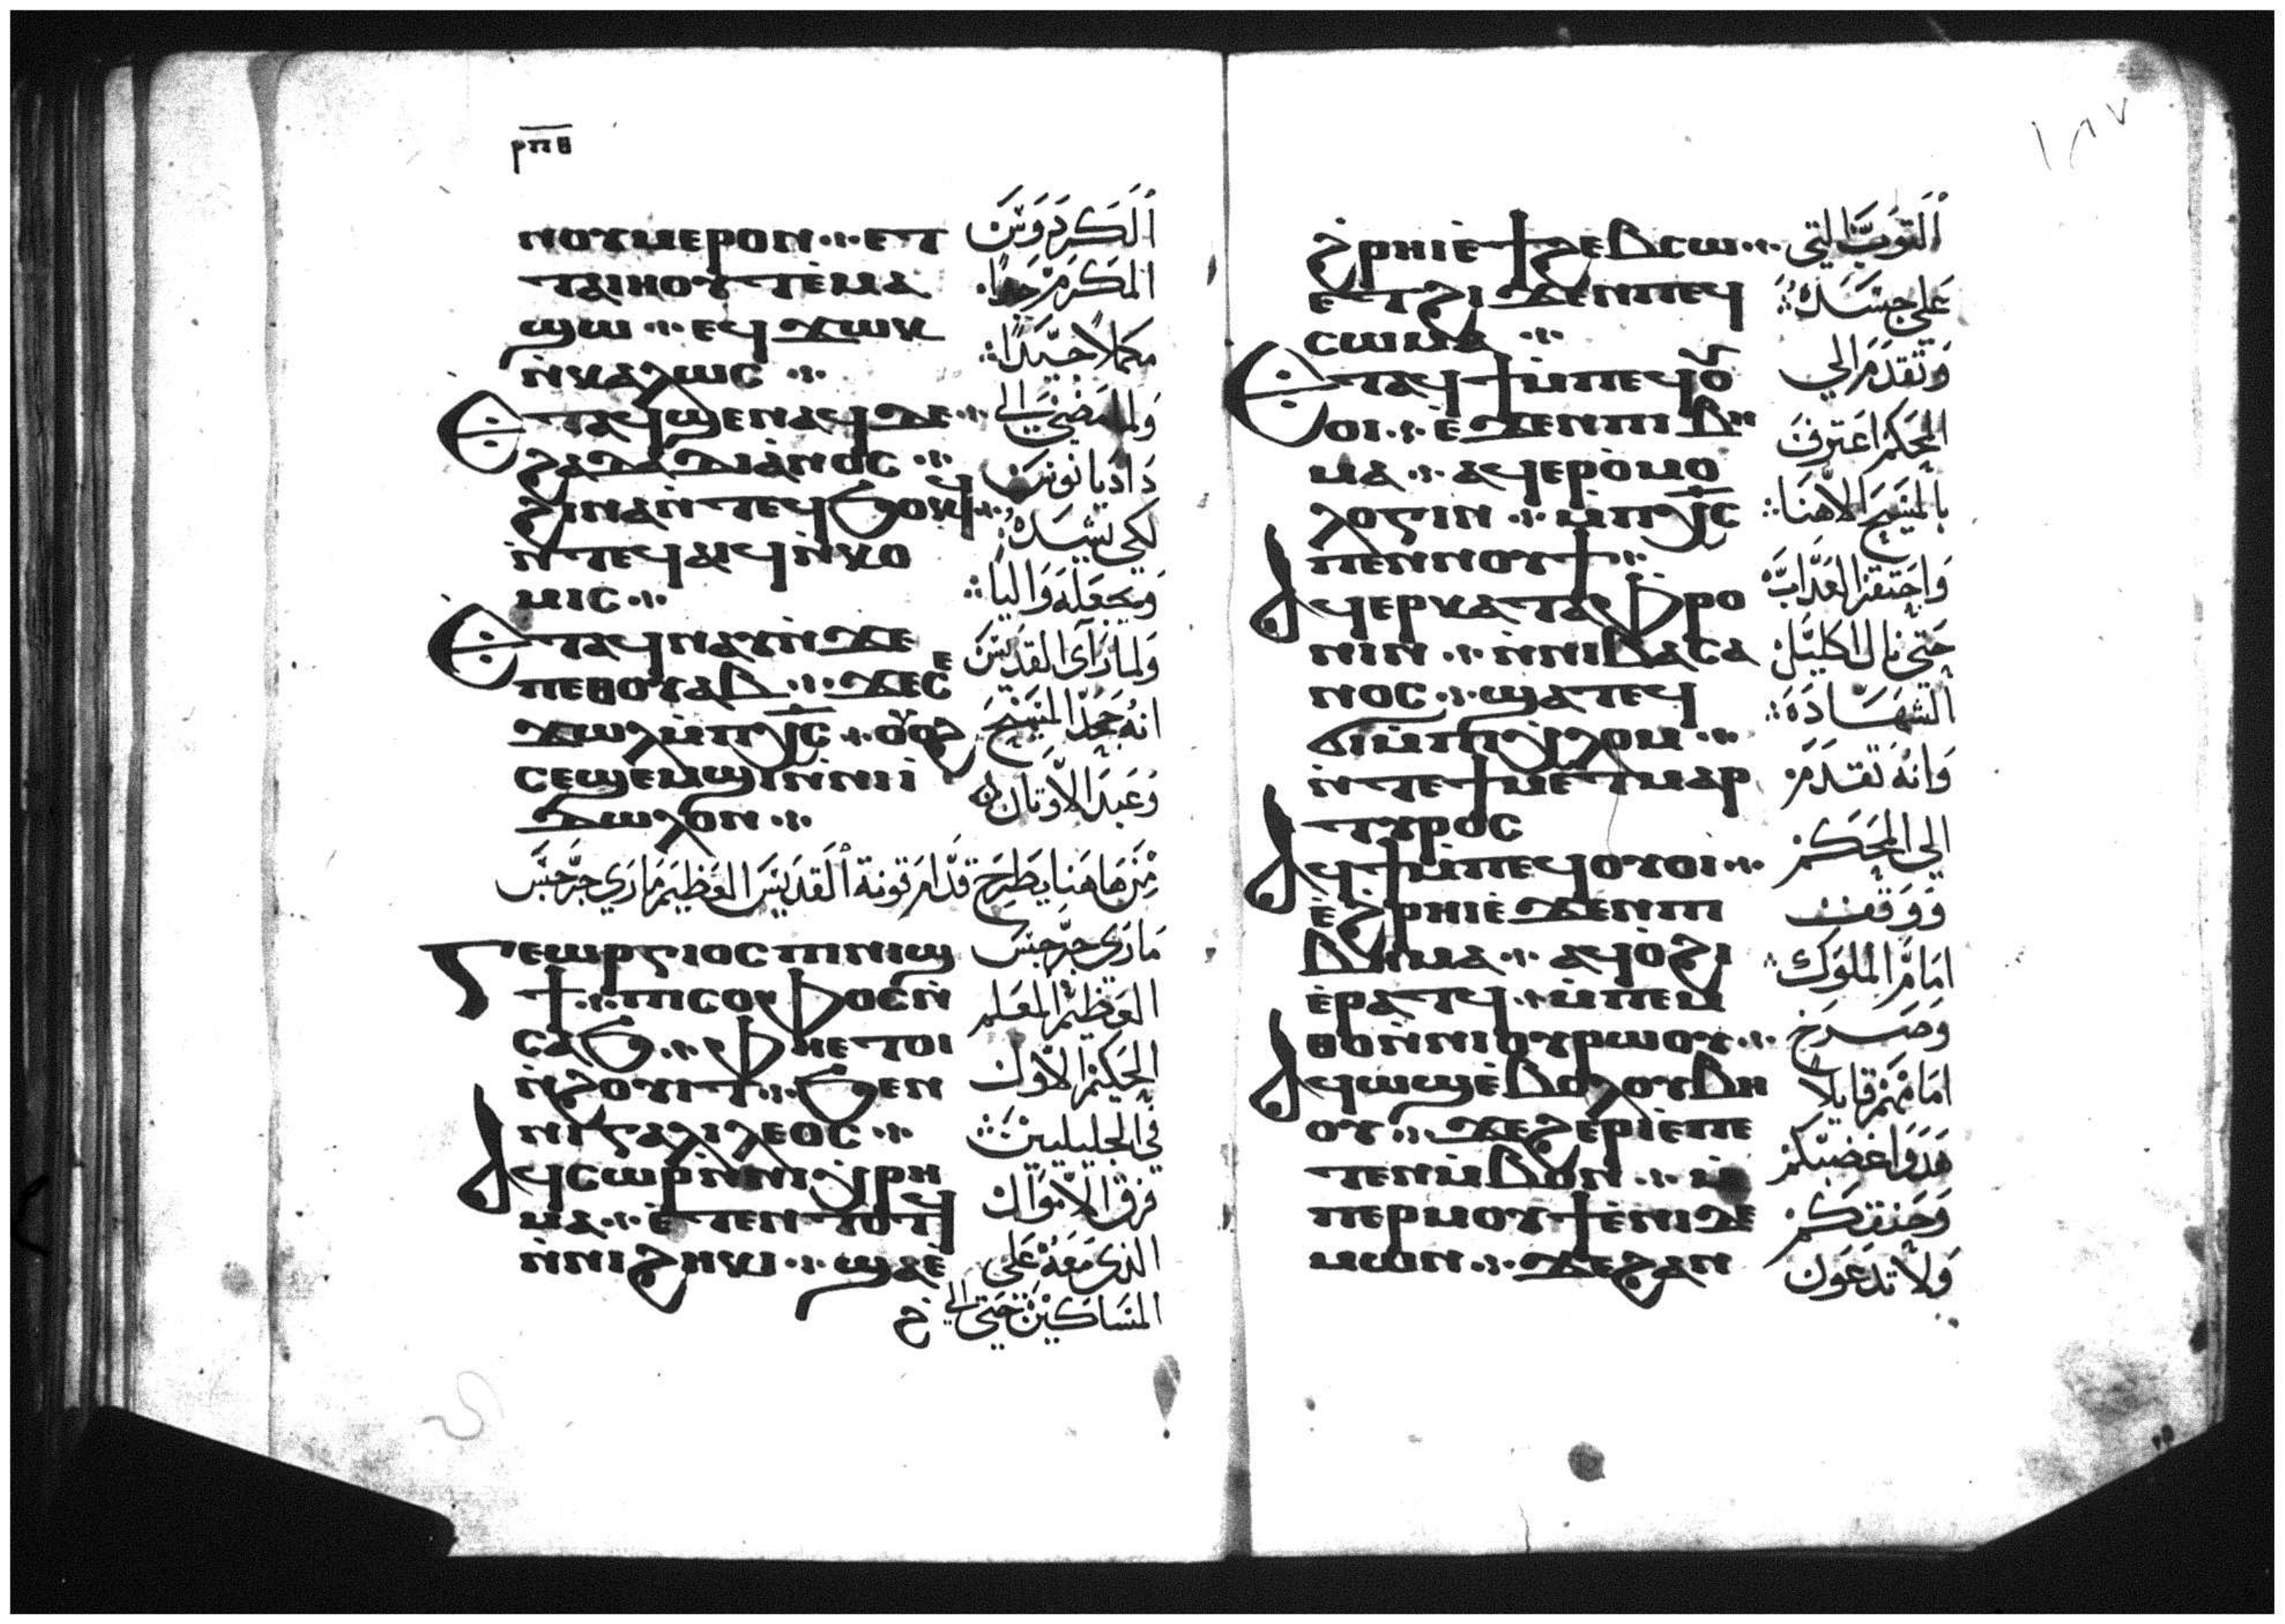 ⲣⲡⲑ
ⲛⲟⲩⲙⲉⲣⲟⲛ ⲉⲧ
ⲧⲁⲓⲏⲟⲩⲧ ⲉ̀ⲙⲁ
ϣⲱ ⲉϥϫⲱⲕ
ⲛ̀ⲕⲁⲗⲱⲥ
Ⲉⲧⲁϥϣⲉⲛⲁϥ ϫⲉ
ϩⲁ ⲇⲁⲇⲓⲁ̀ⲛⲟⲥ
ϩⲓⲛⲁ ⲛ̀ⲧⲉϥϭⲟⲥϥ
ⲛ̀ⲧⲉϥⲁⲓϥ ⲛ̀ⲕⲟ
ⲙⲓⲥ
Ⲉⲧⲁϥⲛⲁⲩ ⲛ̀ϫⲉ
ⲡⲉⲑⲟⲩⲁⲃ ϫⲉ ⲥⲉ
ϫⲱⲗ ⲙ̀ⲡⲭ̅ⲥ̅ ⲟⲩⲟϩ
ⲥⲉϣⲉⲙϣⲓ ⲛ̀ⲛⲓⲓ̀
ⲇⲱⲗⲟⲛ
الكردوس
المكرم جدا
مكملا جيدا
ولما مضى الى
داديانوس
لكي يشيده
ويجعله واليا
ولما راى القديس
انه جحدوا المسيح
وعبدوا الاوثان
من هاهنا يطرح قدام قونة القديس العظيم ماري جرجس
Ⲅⲉⲱⲣⲅⲓⲟⲥ ⲡⲓⲛⲓϣ
ϯ ⲡⲓⲥⲟⲫⲟⲥ ⲛ̀
ⲥⲁϧ ⲫⲏⲉⲧⲟⲓ
ⲛ̀ϩⲟⲩⲓⲧ ϧⲉⲛ
ⲛⲓⲅⲁⲗⲓⲗⲉⲟⲥ
Ⲁϥⲥⲱⲣ ⲛ̀ⲛⲓⲭⲣⲏ
ⲙⲁ ⲉ̀ⲧⲉⲛⲧⲟⲧϥ
ⲛ̀ⲛⲓϩⲏⲕⲓ ϣⲁⲉ̀
مارى جرجس
العظيم المعلم
الحكيم الاول
في الجليليين
فرق الاموال
الذى معه على
المساكين حتى الى
١٨٧
ϩ̀ⲣⲏⲓ ⲉ̀ϯϩⲉⲃⲥⲱ
ⲉⲧϩⲓϫⲉⲛ ⲡⲉϥ
ⲥⲱⲙⲁ
Ⲉⲧⲁϥϯ ⲙ̀ⲡⲉϥⲟⲩ
ⲟⲓ ⲉ̀ϫⲉⲛ ⲡⲓⲃⲏ
ⲙⲁ ⲁϥⲉⲣⲟ̀ⲙⲟ
ⲗⲟⲅⲓⲛ ⲙ̀ⲡⲭ̅ⲥ̅
ⲡⲉⲛⲛⲟⲩϯ
Ⲁϥⲉⲣⲕⲁⲧⲁⲫⲣⲟ
ⲛⲓⲛ ⲛ̀ⲛⲓⲃⲁⲥⲁ
ⲛⲟⲥ ϣⲁⲧⲉϥ
ϭⲓ ⲙ̀ⲡⲓⲭⲗⲟⲙ
ⲛ̀ⲧⲉ ϯⲙⲉⲧⲙⲁⲣ
ⲧⲩⲣⲟⲥ
Ⲁϥϯ ⲙ̀ⲡⲉϥⲟⲩⲟⲓ
ⲉ̀ϩⲣⲏⲓ ⲉ̀ϫⲉⲛ ⲡⲓ
ⲃⲏⲙⲁ ⲁϥⲟ̀ϩⲓ
ⲉ̀ⲣⲁⲧϥ ⲙ̀ⲡⲉⲙ
ⲑⲟ ⲛ̀ⲛⲓⲟⲩⲣⲱⲟⲩ
Ⲁϥⲱϣ ⲉ̀ⲃⲟⲗ ⲟⲩⲃⲏ
ⲟⲩ ϫⲉ ϩⲉⲣⲓ ⲉ̀ⲡⲉ
ⲧⲉⲛⲙ̀ⲃⲟⲛ ⲙ̀
ⲡⲉⲣⲙⲟⲩϯ ⲉ̀ⲛⲓⲇⲉ
ⲙⲱⲛ ϫⲉ ϩⲁⲛ
الثوب التي
على جسده
وتقدم الي
الحكم اعترف
بالمسيح الاهنا
واحتقر العذاب
حتى نال اكليل
الشهاده
وانه تقدم
الى الحكم
ووقف
امام الملوك
وصرخ
امامهم قايلا
هدوا غضبكم
وحنقكم
ولا تدعون